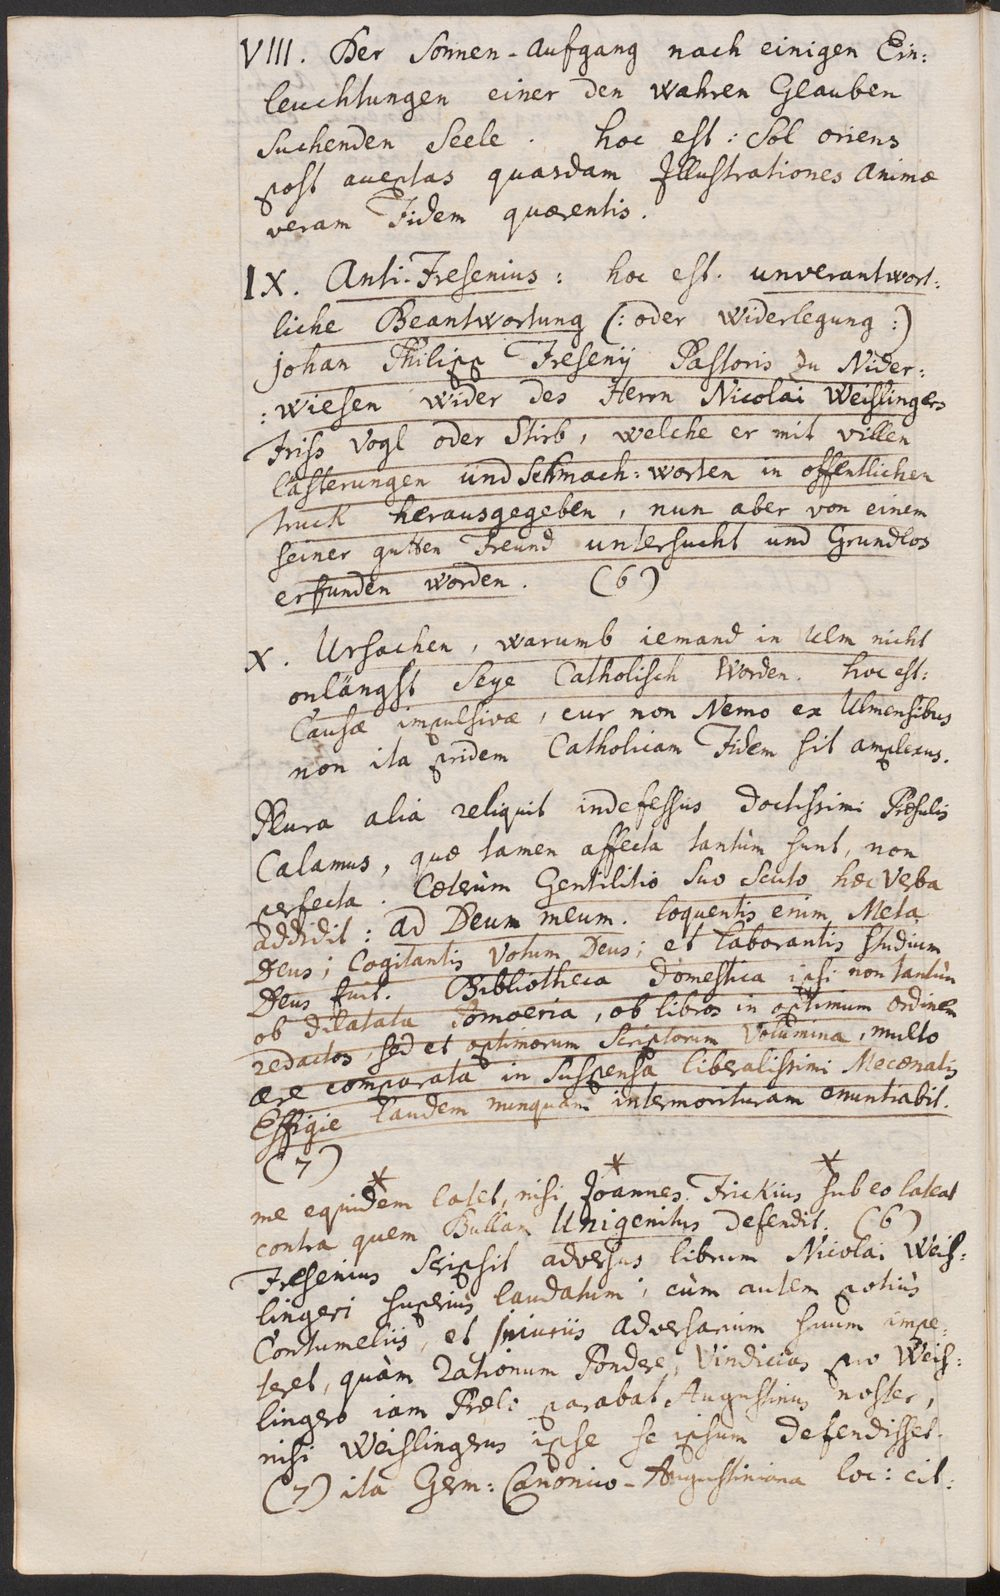 VIII. Der Sonnen-Aufgang nach einigen Ein:
leuchtungen einer den wahren Glauben
Suchenden Seele. hoc est: Sol oriens
post aceptas quasdam Illustrationes Animæ
veram Fidem quærentis.
IX. Anti-Fresenius: hoc est. unverantwort:
liche Beantwortung (: oder widerlegung :)
Johan Philipp Fresenij Pastoris zu Nider:
:wiesen wider des Herrn Nicolai Weislingers
Friss Vogl oder Stirb, welche er mit villen
lästerungen und Schmach: worten in offentlichen
truck herausgegeben, nun aber von einem
seiner gutten Freund untersucht und Grundlos
erfunden worden. (6)
X. Ursachen, warumb iemand in Ulm nicht
onlängst Seye Catholisch Worden. hoc est:
Causæ impulsivæ, cur non Nemo ex Ulmensibus
non ita pridem Catholicam Fidem sit amplexus.
Plura alia reliquit indefessus doctissimi Præsulis
Calamus, quæ tamen affecta tantùm sunt, non
perfecta. Cæterùm Gentilitio suo Scuto hæc Verba
addidit: Ad Deum meum. loquentis enim Meta
Deus; Cogitantis Votum Deus; et laborantis studium
Deus fuit. Bibliotheca domestica ipsi non tantùm
ob dilatata Pomoeria, ob libros in optimum ordinem
redactos, sed et optimorum Scriptorum Volumina, multo
ære comparata in suspensa liberalissimi Mecœnatis
Effigie laudem nunquam intermorituram enuntiabit.
(7)
me equidem latet, nisi Joannes Frickius sub eo lateat
contra quem Bullam Unigenitus defendit. (6)
Fresenius scripsit adversus librum Nicolai Weis:
lingeri superiùs laudatum; cùm autem potiùs
Contumeliis, et Iniuriis adversarium suum impe:
teret, quàm rationum Pondere, Vindicias pro Weis:
lingero iam Prælo parabat Augustinus noster,
nisi Weislingerus ipse se ipsum defendisset.
(7) ita Germ: Canonico-Augustiniana loc: cit: